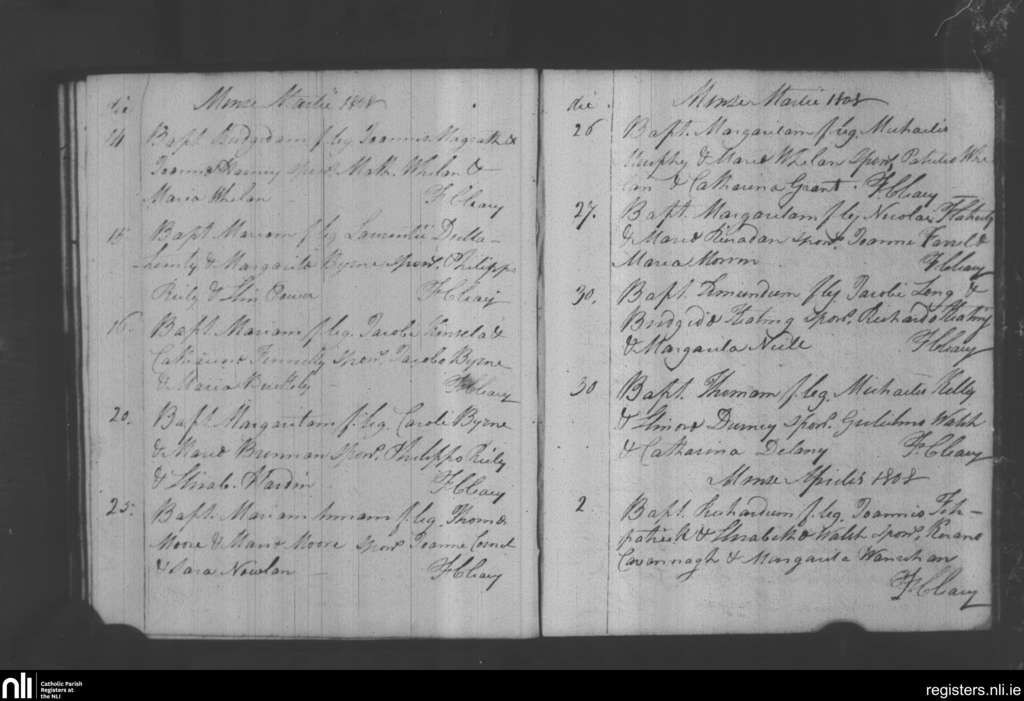 die Mense Martii 1808
14 Bapt. Bridgidam f. leg. Joannis Magrath &
Joanna sponr. Math. Whelan &
Maria Whelan F. Cleary
15 Bapt Mariam f leg Laurentii Dulla-
hunty & Margarita Byrne sponr. Philippo
Reily & Elin Power F. Cleary
16. Bapt. Mariam f. leg. Jacobi Kinsela &
Catharina sponr. Jacobo Byrne
& Maria F. Cleary
20. Bapt Margaritam f. leg. Caroli Byrne
& Maria Brennan sponr. Philippo Reily
& Elizab. Hardin F. Cleary
25. Bapt. Mariam f. leg. Thoma
Moore & Maria Moore sponr. Joanne
& Sara Nowlan F. Cleary
die. Mense Martii 1808
26 Bapt. Margaritam f. leg. Michaelis
Murphy & Maria Whelan sponr. Patritio Whe
lan & Catharina Grant. F. Cleary
27. Bapt. Margaritam f. leg. Nicolai Flaherty
& Maria sponr. Joanne Farrel &
Maria F. Cleary
30. Bapt. Edmundum f leg Jacobi Long &
Bridgida Keating sponr. Richardo Keating
& Margarita Neile F. Cleary
30 Bapt. Thomam f. leg. Michaelis Kelly
& Elinora sponr. Gulielmo Walsh
& Catharina Delany F. Cleary
Mense Aprilis 1808
2 Bapt. Richardum f. leg. Joannis Fitz-
patrick & Elisabetha Walsh sponr. Kirano
Cavannagh & Margarita
F. Cleary
nli Catholic Parish
Registers at
the NLI
registers.nli.ie